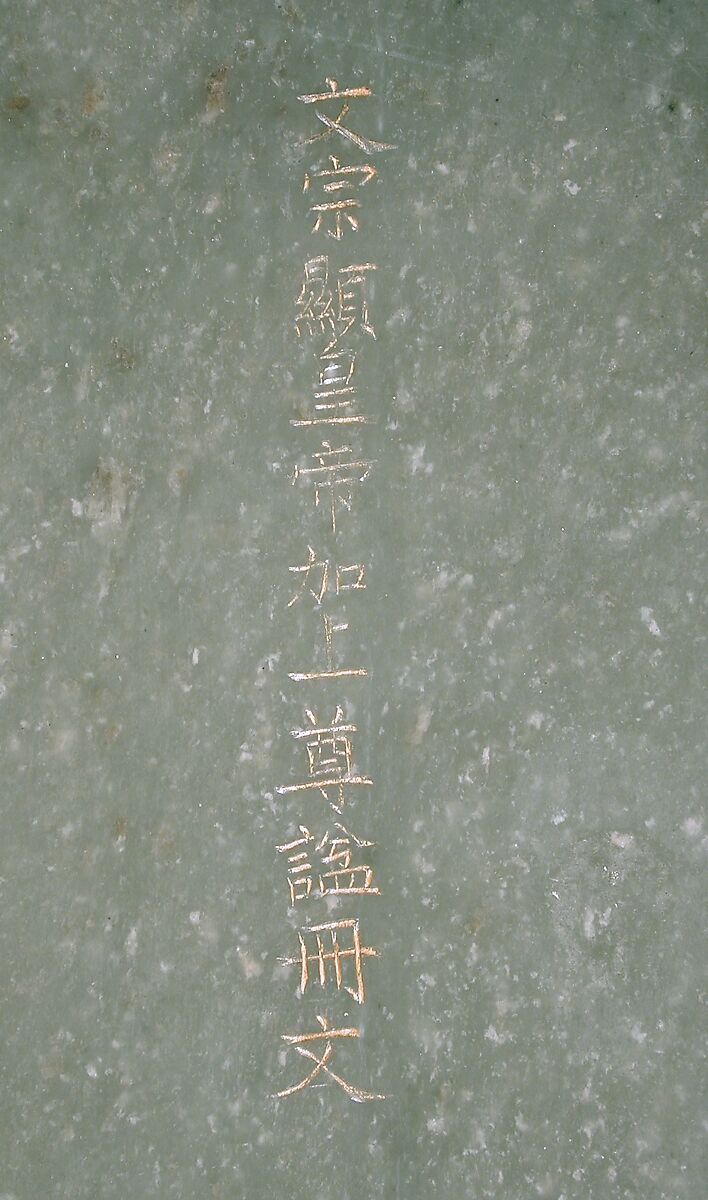 文宗顯皇帝加上尊諡冊文